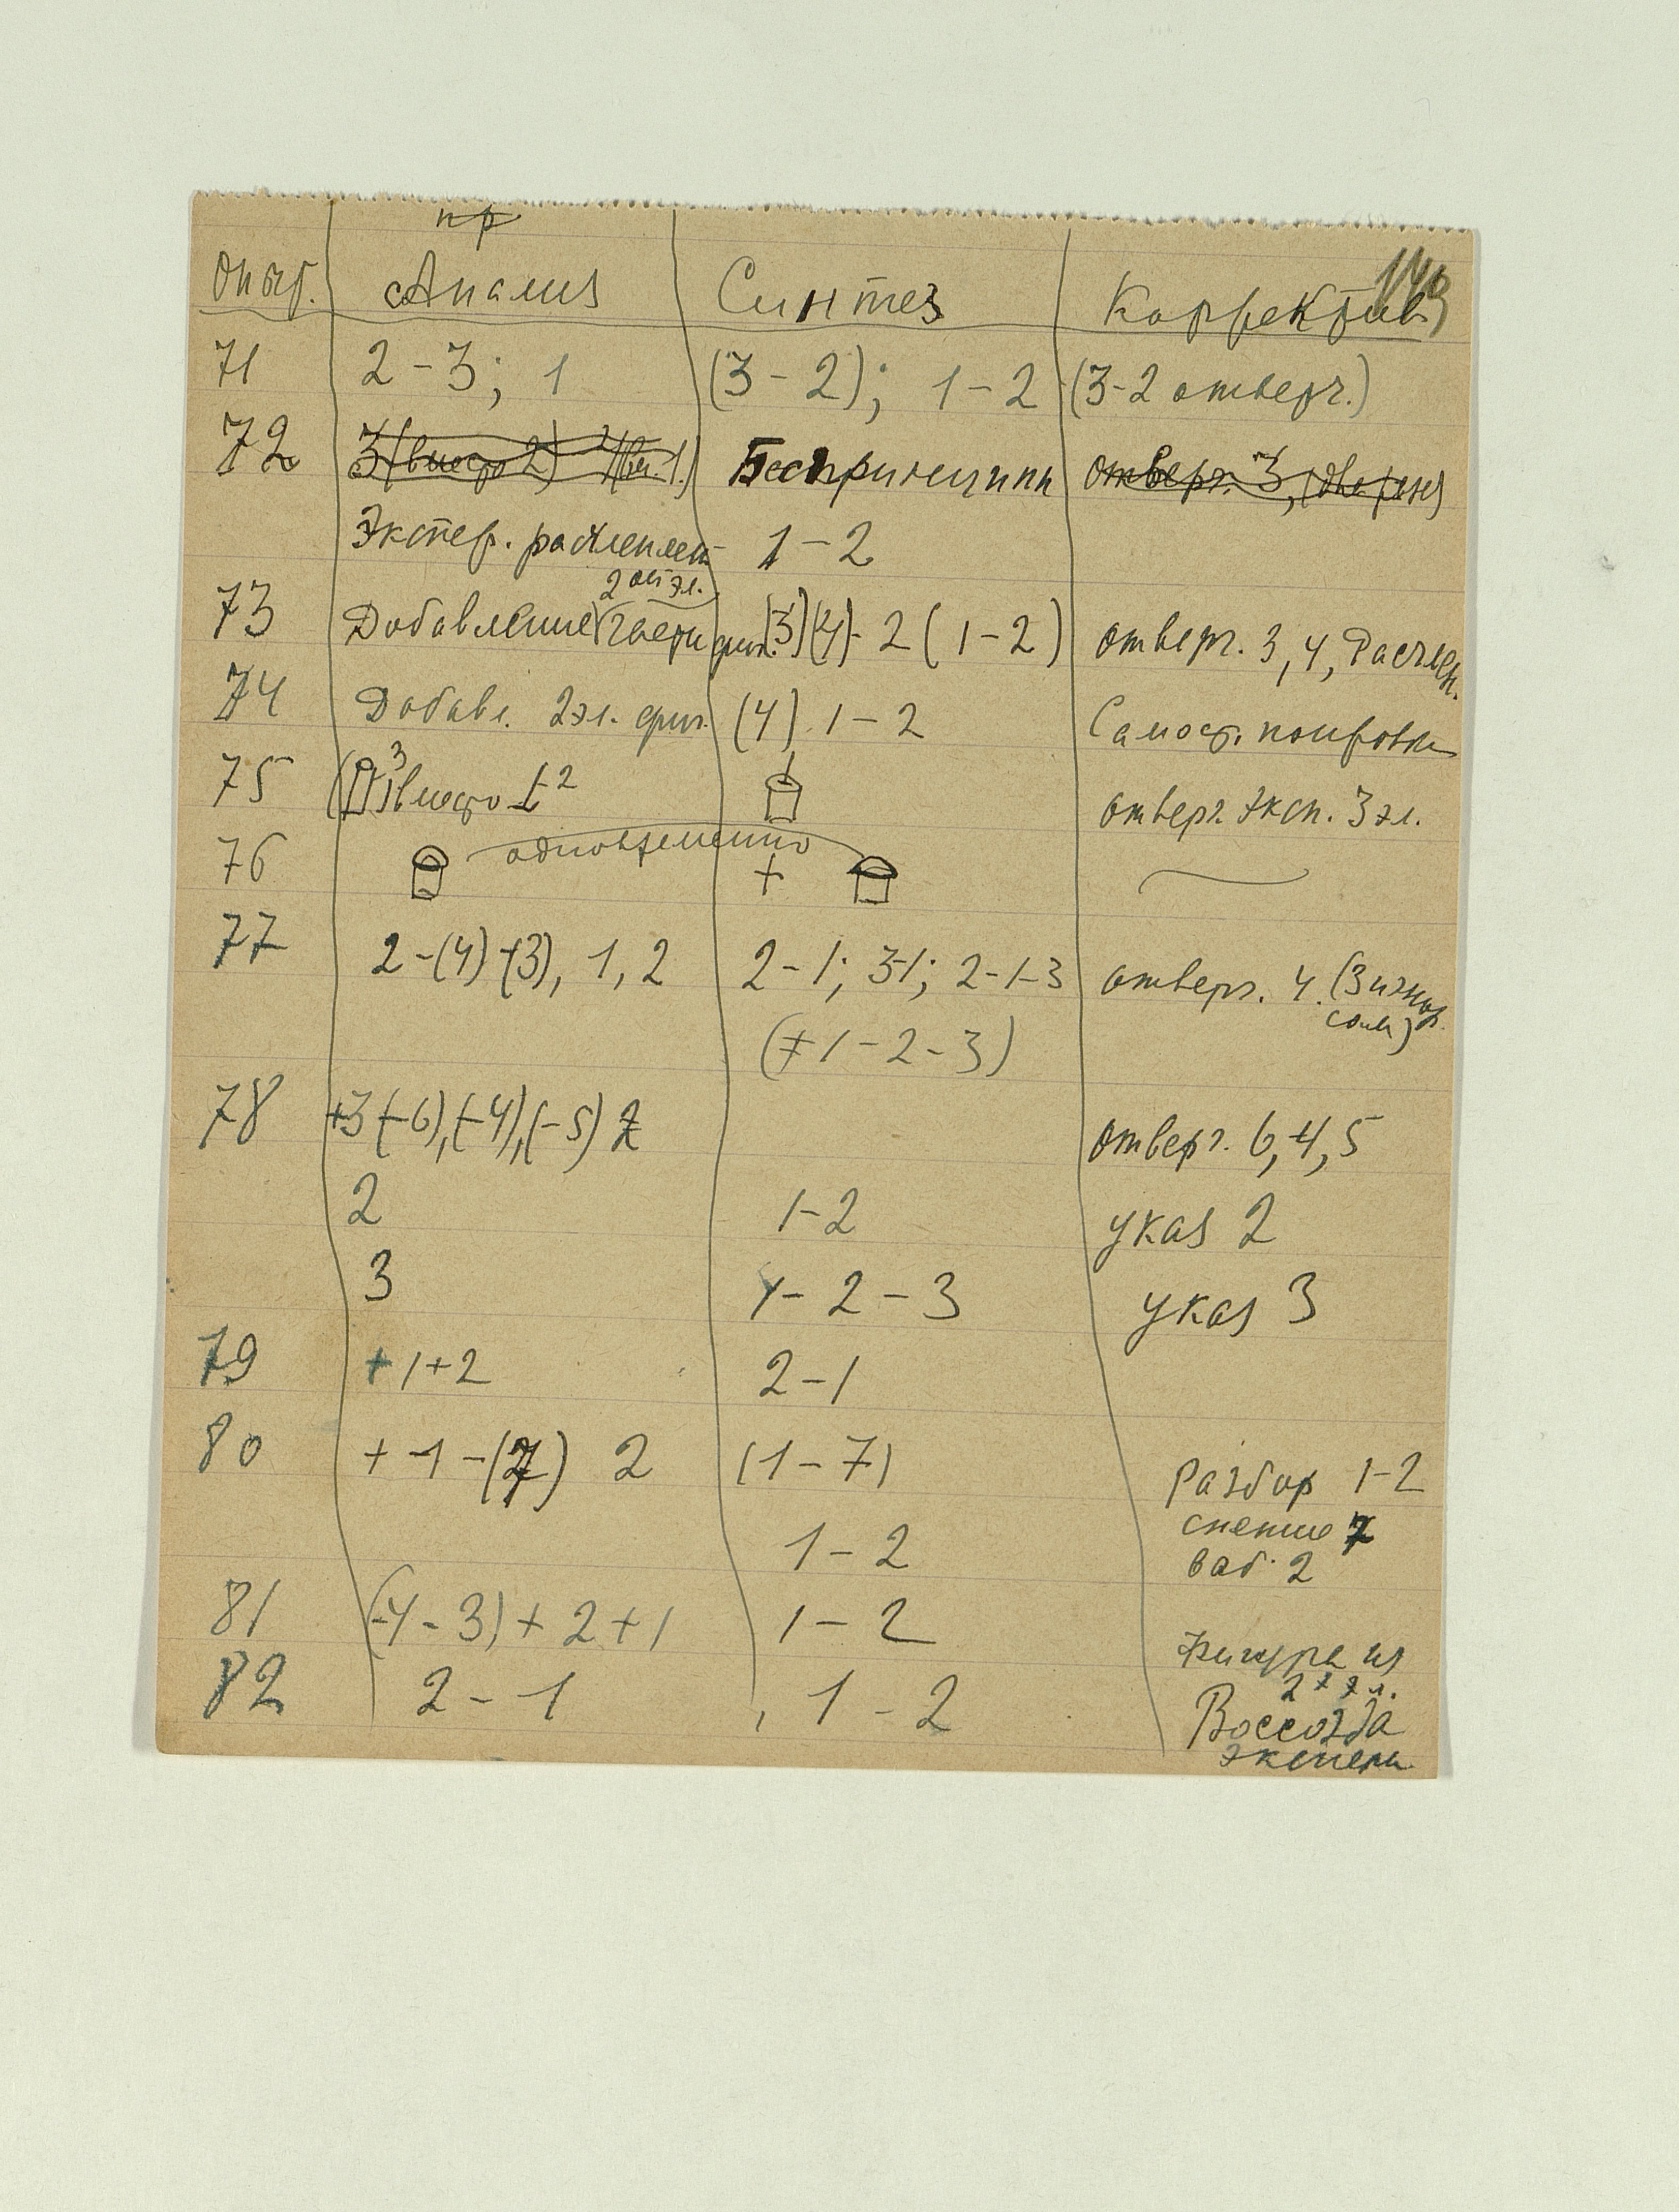 пр
149
Опыт. Анализ Синтез Корректив
71 2-3; 1 (3-2); 1-2 (3-2 отверг.)
72 3 (вместо 2) Беспринципн отверг. 3,
Экспер. расчленяет 1-2
2 ост эл.
73 Добавление части фиг. (3)(4)- 2 (1-2) отверг. 3, 4, Расчлен.
74 Добавл. 2 эл. фиг. (4) 1-2 Самост. копировка
75 3 вместо 2 отверг. Эксп. 3 эл.
76 одновременно +
77 2-(4)-(3), 1, 2 2-1; 3-1; 2-1-3 отверг. 4. (3 игнор.
сам)
(+1-2-3)
78 +3 (-6), (-4), (-5) 2 отверг. 6, 4, 5
2 1-2 указ 2
3 1-2-3 указ 3
79 +1+2 2-1
80 + -1 -(7) 2 (1-7) Разбор 1-2
снятие 7
1-2 2
81 (-4-3)+2+1 1-2
Фигура из
2х эл.
82 2-1 1-2 Воссозда
экспери